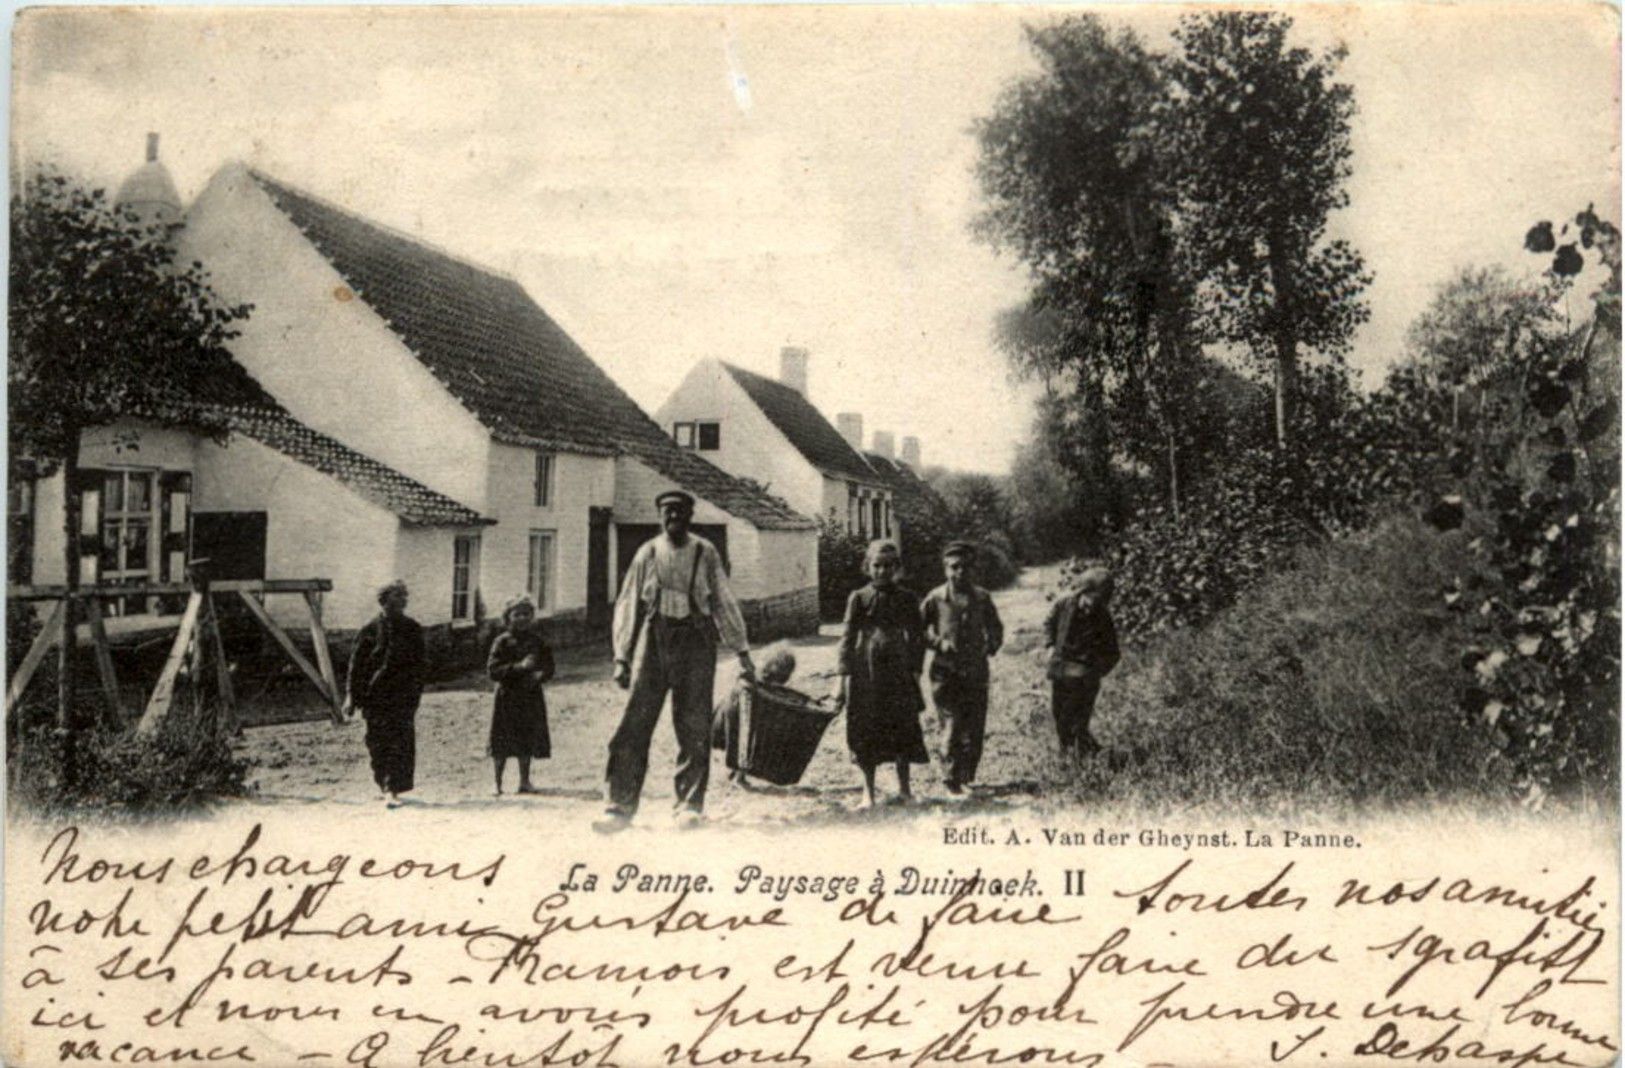 Edit. A. Van der Gheynst. La Panne.
La Panne. Paysage à Duinhoek. II
Nous chargeons
notre petit ami Gustave de faire toutes nos amitiés
à ses parents - est venu faire du sgrafitt
ici et nous en avons profité pour prendre une bonne
vacance - A bientôt nous espérons -